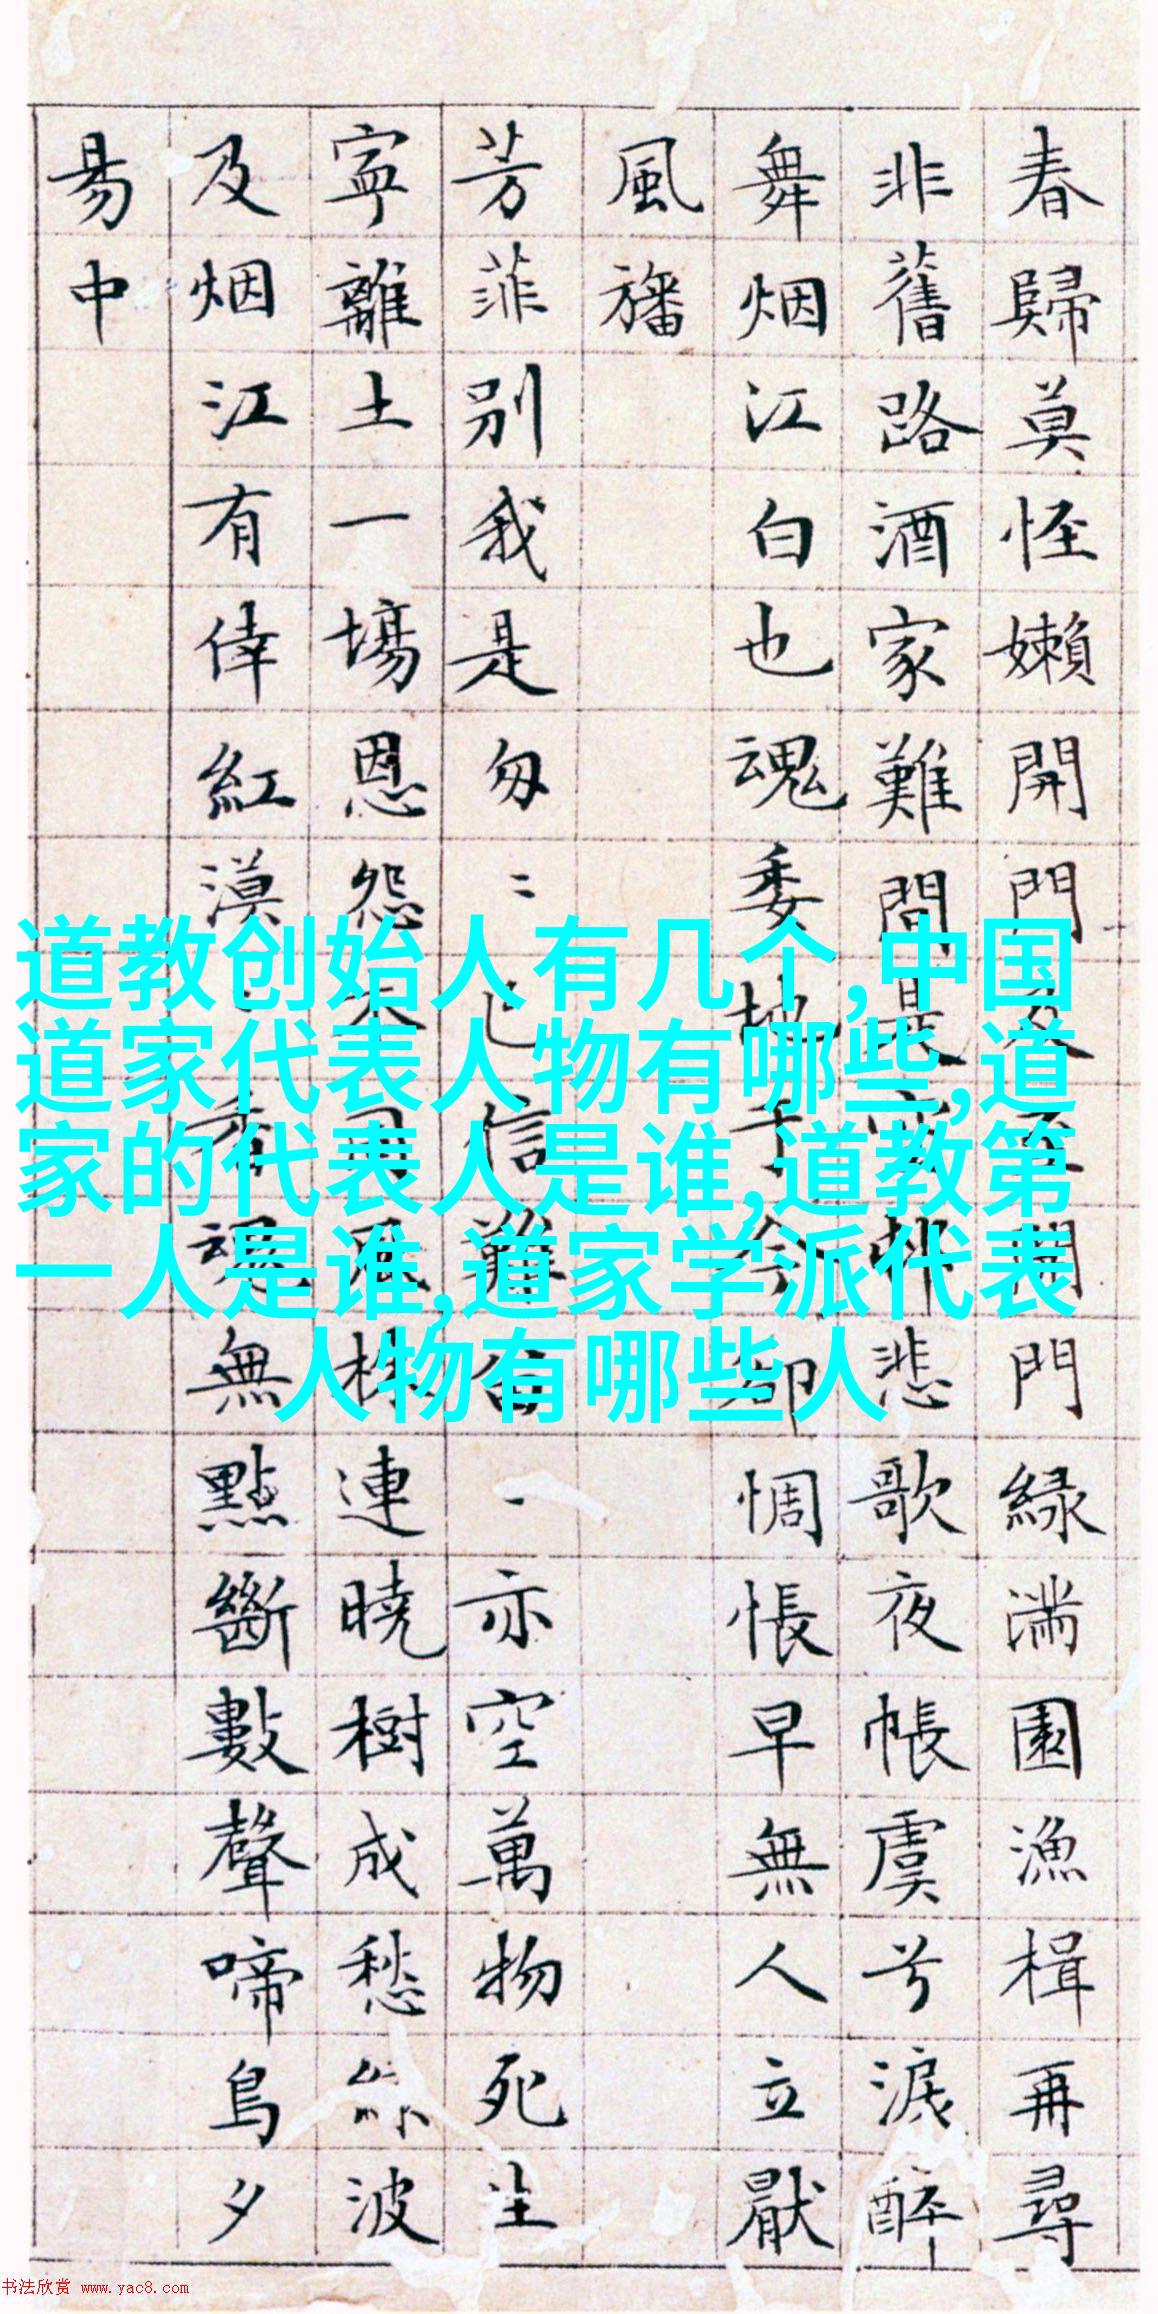 道教创始人有几个,中国
道家代表人物有哪些,道
家的代表人是谁,道教第
一人是谁,道家学派代表
人物有哪些人
春歸莫怪嬾開門及至開門緑满園漁楫再尋
非舊路酒家難問是空邨悲歌夜帳虞兮淚醉
舞烟江白也魂委地于今却惆悵早無人立厭
風旛
芳菲別我是匆〻已信難留、亦空萬物死生
寧離土一場恩怨本同風株連曉樹成愁絲波
及烟江有倖紅漠、香魂無點斷數聲啼鳥夕
易中
书法欣赏 www.yac8.com